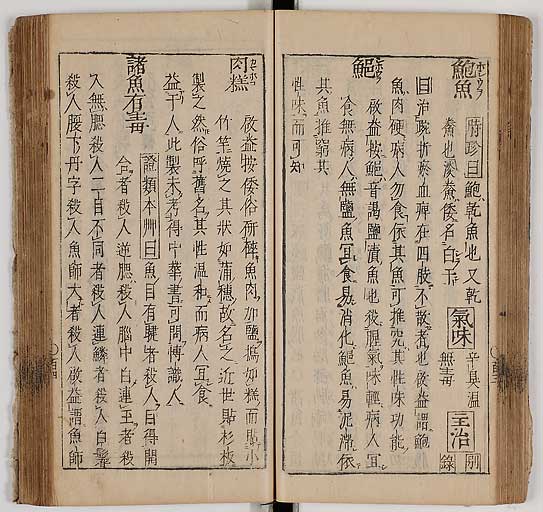 鮑魚
時珍曰鮑乾魚也又乾
魚也淡 倭名白干
氣味 辛臭温
無毒
主治 別
錄
曰治 折瘀血痺在四肢不散者也啟益謂鮑
魚肉硬病人勿食依其魚可推究其性味功能
䱒
啟益按䱒音 鹽漬魚也 腥氣味輕病人宜
食無病人無鹽魚宜食易消化䱒魚易泥滯依
其魚推窮其
性味而可知
肉糕
啟益按倭俗所 魚肉加鹽搗如糕而貼小
竹竿燒之其狀如蒲穗故名之近世貼杉板
製之然俗呼舊名其性温和而病人宜食
益于人此製未考得中華書可問博識人
諸魚有毒
證類本艸曰魚目有 者殺人目得開
合者殺人逆腮殺人腦中白連 者殺
人無腮殺人二目不同者殺人連鱗者殺人白
殺人腰下丹字殺人魚師大者殺人啟益謂魚師